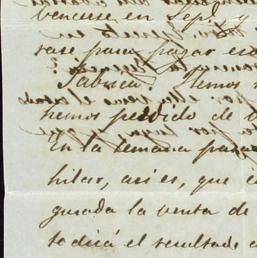 vencerse en Sepd. y
rase para pagar eso
Fabrica? Hemos
hemos perdido de v
En la semana pasa
hilar, asi es, que c
guiada la venta de
te dirá el resultado d